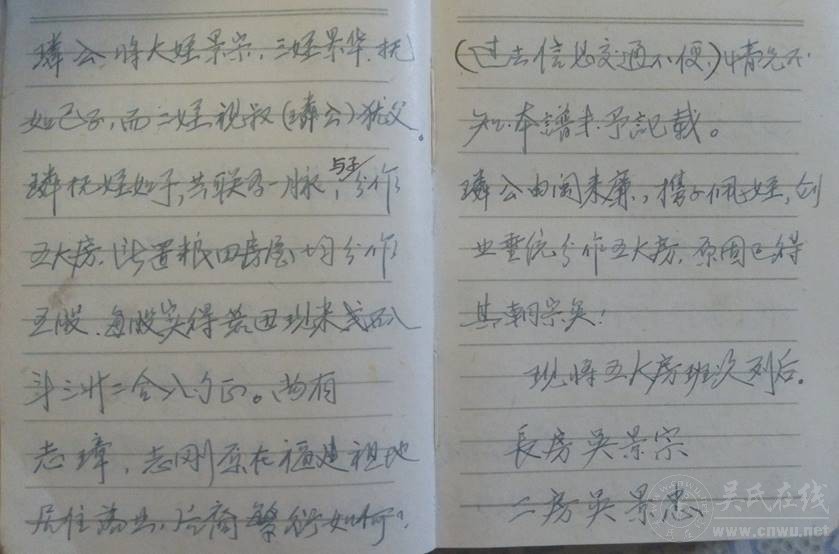 璘公将大姪景宗，三姪景华，抚
如己子，而二姪视叔（璘公）犹父。
璘抚姪如子，共联为一脉，与子分作
五大房，所置粮田房屋一切分作
五股，每股实得苗田
斗三升二合八勺正。尚有
志璋，志刚原在福建祖地
居住，后裔繁衍如何？
（过去信息交通不便，）情况不
知，本譜未予記載。
璘公由闽来廉，携子佩姪，创
业垂统分作五大房，原因已得
其朝宗矣！
现将五大房班次列后。
長房吴景宗
二房吴景忠
吴氏在线
www.cnwu.net